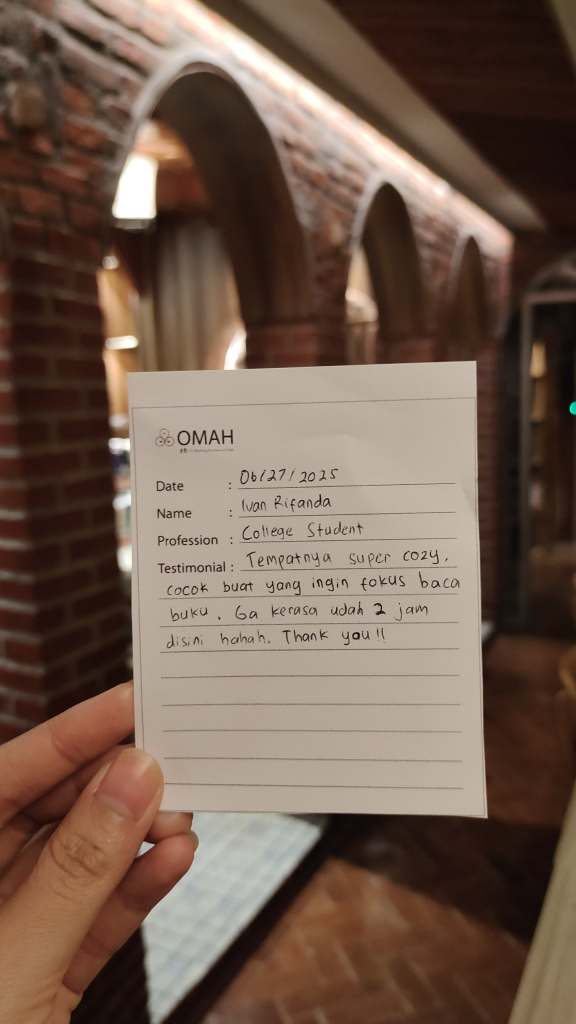 OMAH
Date : 06/27/2025
Name : Ivan Rifanda
Profession : College Student
Testimonial : Tempatnya super cozy,
cocok buat yang ingin fokus baca
buku. Ga kerasa udah 2 jam
disini hahah. Thank you!!